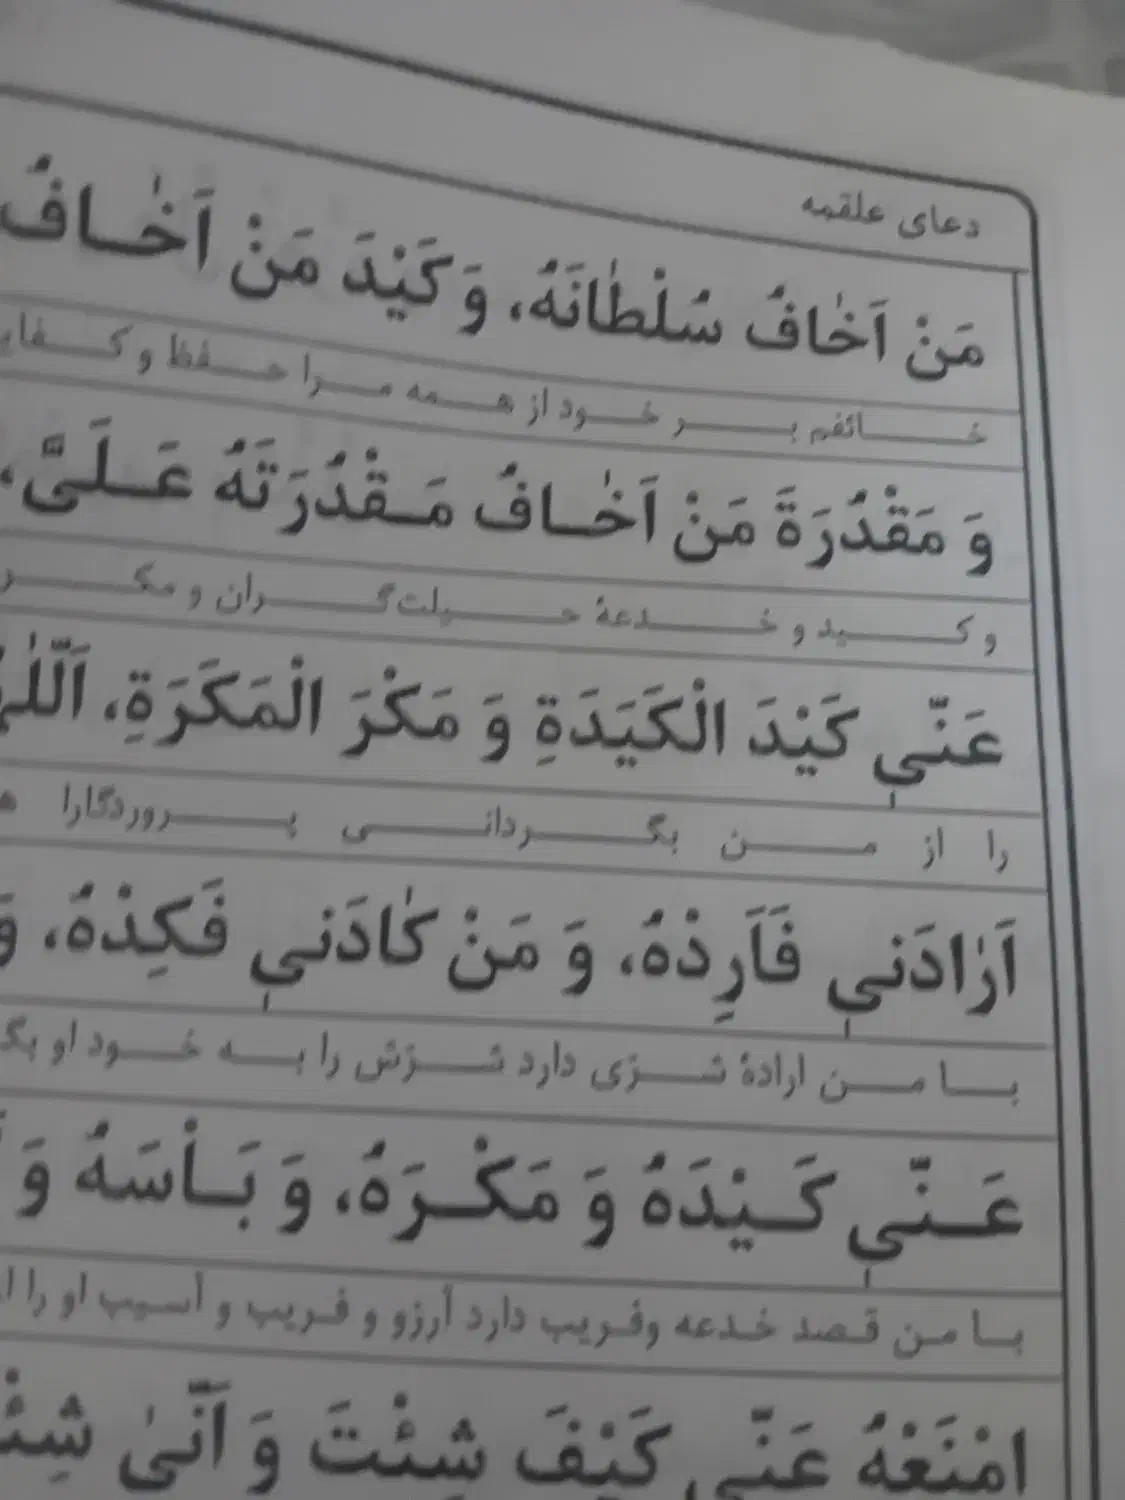 دعای علقمه
مَنْ اَخٰافُ سُلْطٰانَهُ، وَ كَيْدَ مَنْ اَخٰـافُ
خـائفم بـر خـود از هـمه مـرا حـفظ و كـفايـ
وَ مَقْدُرَةَ مَنْ اَخٰـافُ مَـقْدُرَتَهُ عَـلَیَّ،
و كـيد و خـدعهٔ حـيلت‌گـران و مكـر
عَنّی كَيْدَ الْكَيَدَةِ وَ مَكْرَ الْمَكَرَةِ، اَللّٰ
را از مـن بگـردانـی پـروردگارا
اَرٰادَنی فَاَرِدْهُ، وَ مَنْ كٰادَنی فَكِدْهُ، وَ
بـا مـن ارادهٔ شـرّی دارد شـرّش را بـه خـود او بگـ
عَـنّی كَـيْدَهُ وَ مَكْـرَهُ، وَ بَـأْسَهُ وَ
بـا من قـصد خـدعه وفـريب دارد آرزو و فـريب و آسيب او را
امْنَعْهُ عَنّی كَيْفَ شِئْتَ وَ اَنّیٰ شِئْ